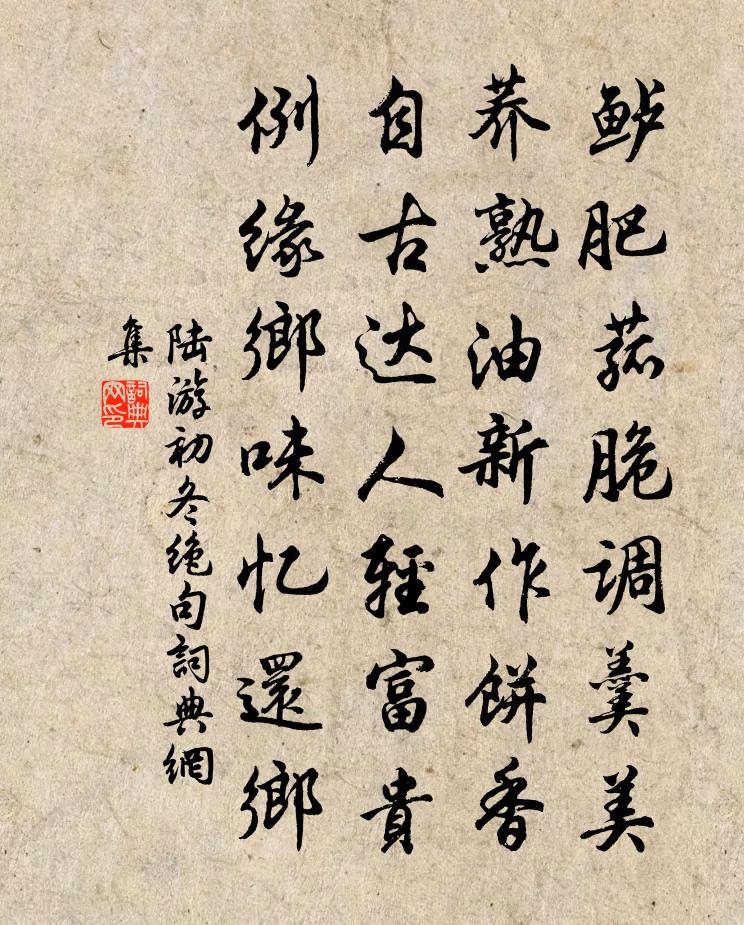 鲈肥菰脆调羹美
荞熟油新作餅香
自古达人輕富貴
例缘鄉味忆還鄉
陆游初冬绝句詞典網
集
詞典
网印